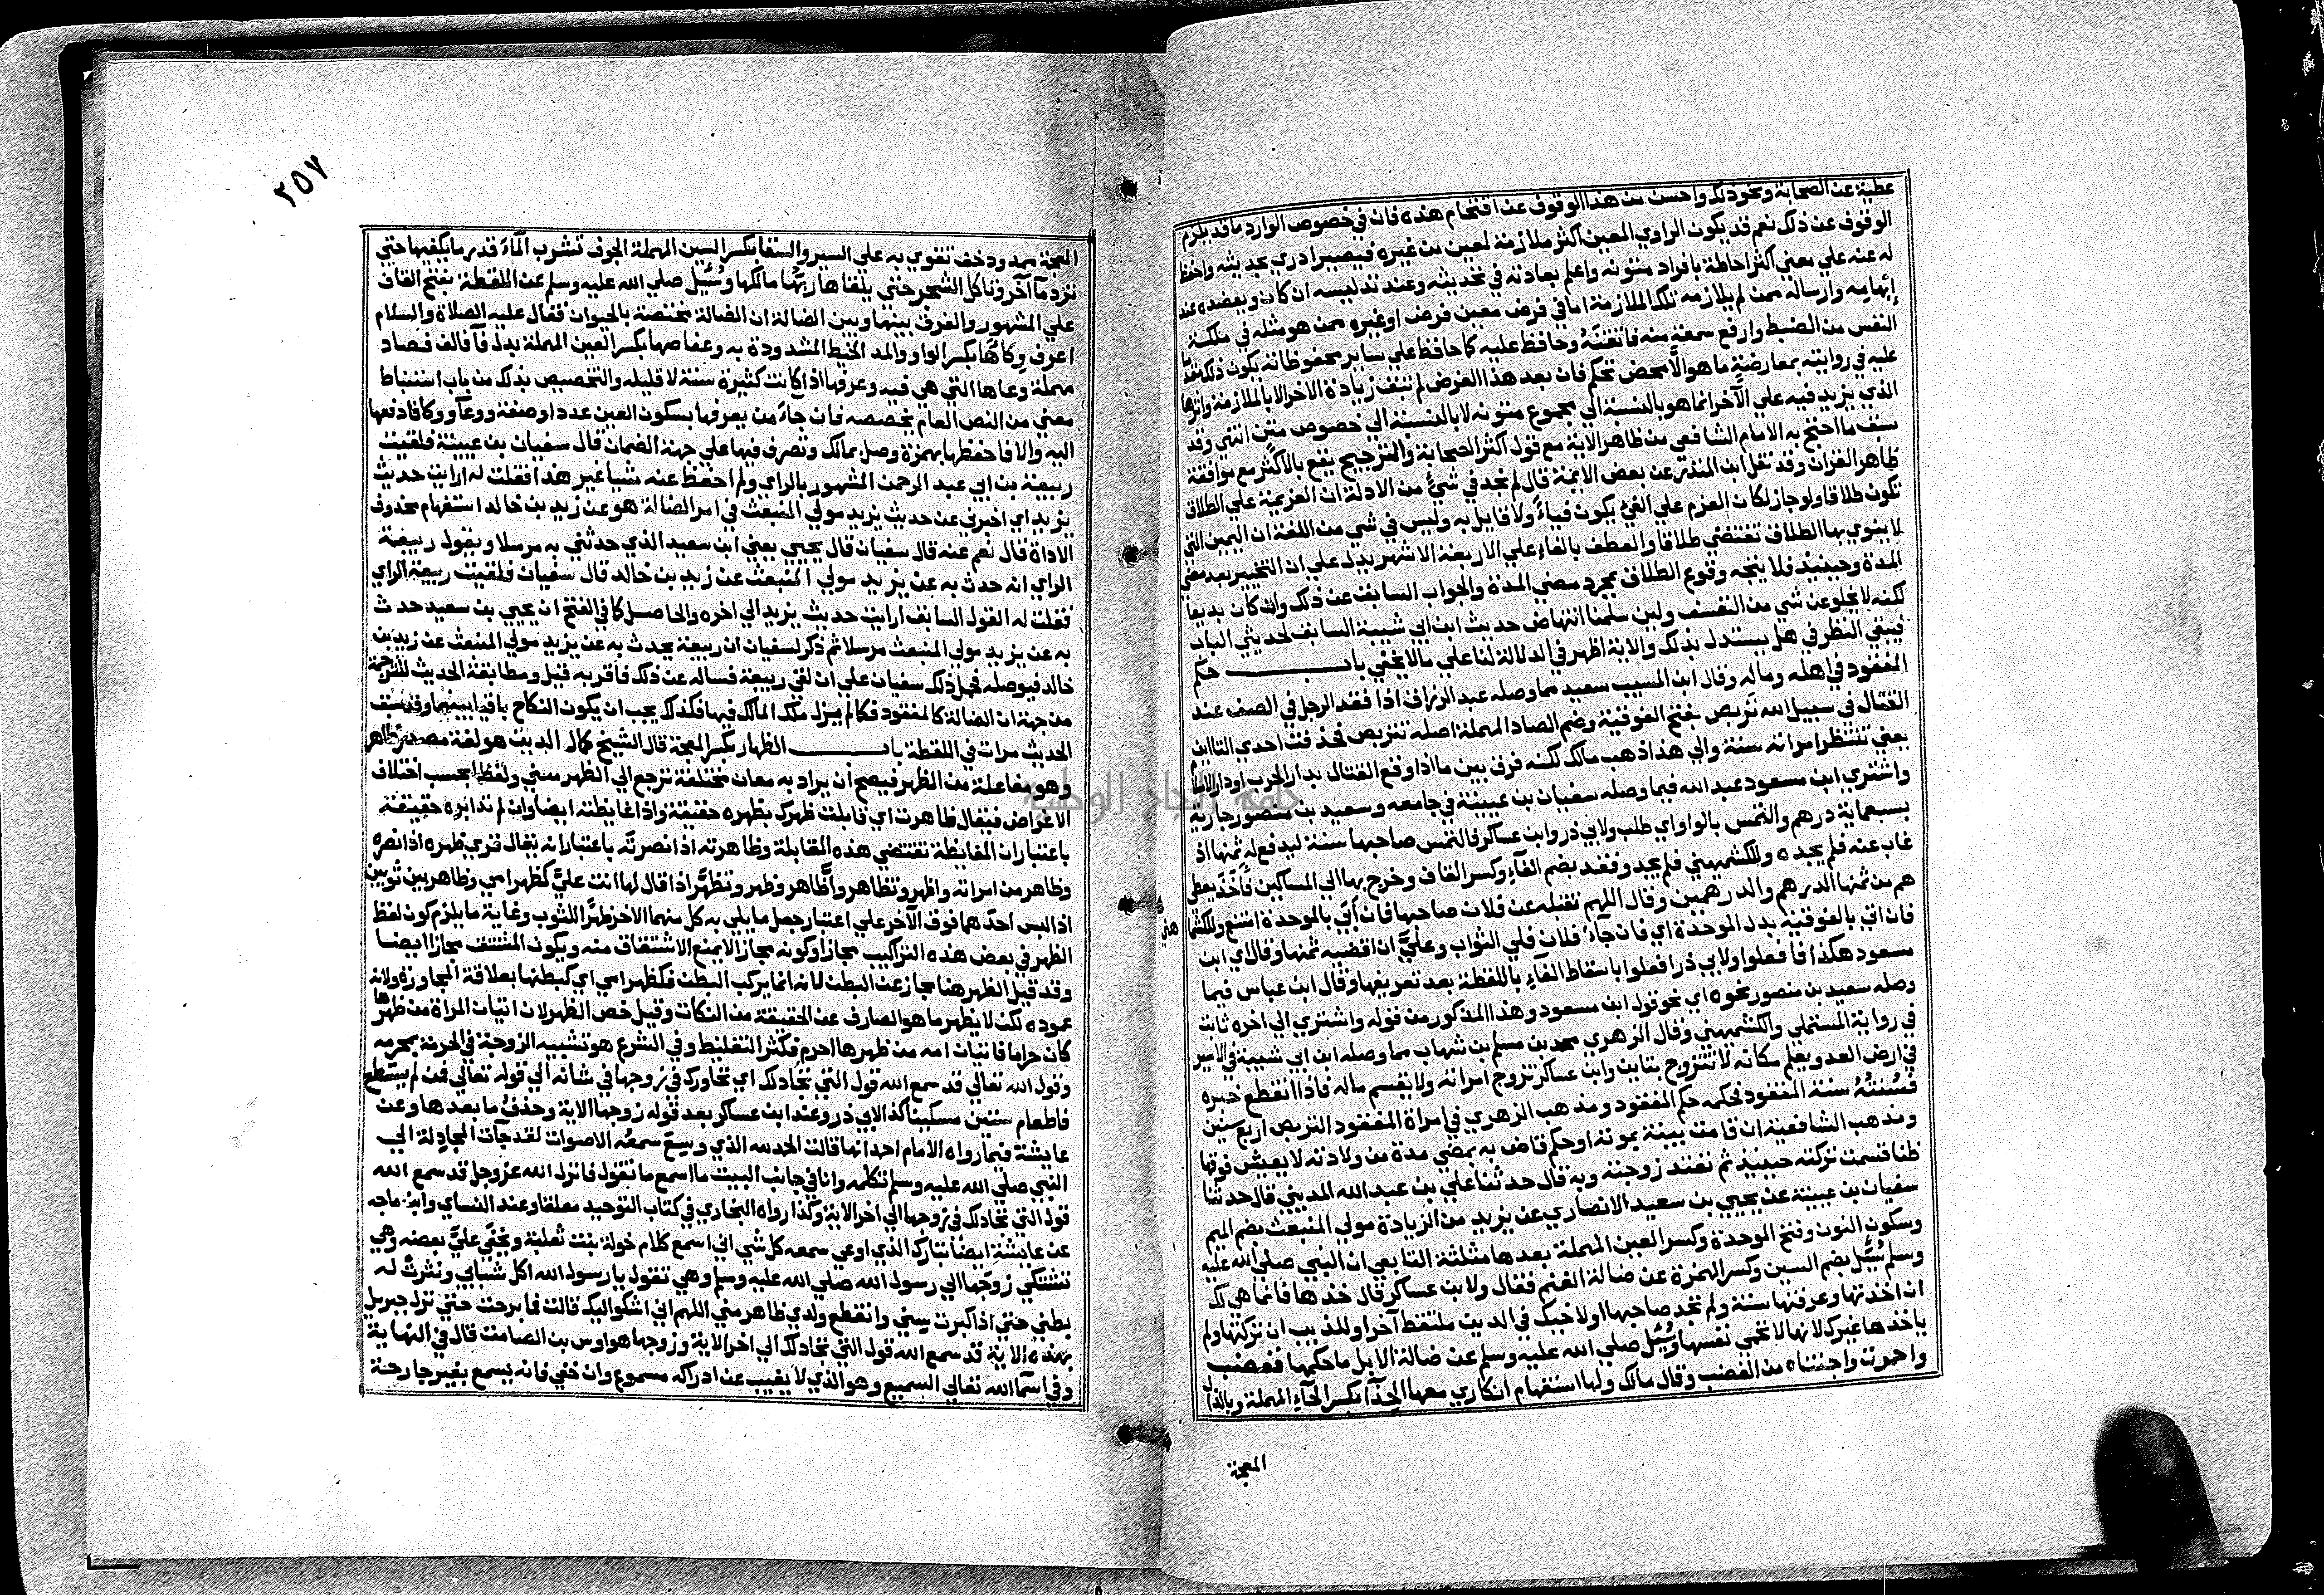 عطية عن الصحابة ونحو ذلك واحسن من هذا الوقوف عن اقتحام هذه فان في خصوص الوارد ما قد يلزم
الوقوف عن ذلك نعم قد يكون الراوي المعين اكثر ملازمة لمعين من غيره فيصير ادري بحديثه واحفظ
له عنه علي معني اكثر احاطة بافراد متونه واعلم بعادته في تحديثه وعند تدليسه ان كان وبقصده عند
إبهامه وارساله ممن لم يلازمه تلك الملازمة اما في فرض معين فرض او غيره ممن هو مثله في ملكة
النفس من الضبط وارفع سمعه منه فاتقنه وحافظ عليه كما حافظ علي ساير محفوظاته يكون ذلك تقد
عليه في روايته بمعارضة ما هو الا محض تحكم فان بعد هذا الفرض لم تبق زيادة الاخر الا بالملازمة واثرها
الذي يزيد فيه علي الآخر انما هو بالنسبة الي مجموع متونه لا بالنسبة الي خصوص متن انتهي وقد
سبق ما احتج به الامام الشافعي من ظاهر الاية مع قول اكثر الصحابة والترجيح يقع بالاكثر مع موافقة
ظاهر القران وقد نقل ابن المنذر عن بعض الايمة قال لم نجد في شي من الادلة ان العزيمة علي الطلاق
تكون طلاقا ولو جاز لكان العزم علي الفي يكون فيا ولا قايل به وليس في شي من اللغة ان اليمين التي
لا ينوي بها الطلاق تقتضي طلاقا والعطف بالفاء علي الاربعة الاشهر يدل علي ان التخيير بعد مضي
المدة وحينيذ فلا يتجه وقوع الطلاق بمجرد مضي المدة والجواب السابق عن ذلك وان كان بديعا
لكنه لا يخلو عن شي من التعسف ولين سلمنا انتهاض حديث ابن ابي شيبة السابق لحديثي الباب
فيبقي النظر في هل يستدل بذلك والاية اظهر في الدلالة لنا علي ما لا يخفي باب حكم
المفقود في اهله وماله وقال ابن المسيب سعيد مما وصله عبد الرزاق اذا فقد الرجل في الصف عند
القتال في سبيل الله تربص بفتح الفوقية وضم الصاد المهملة اصله تتربص فحذفت احدي التاين
يعني تنتظر امراته سنة والي هذا ذهب مالك لكنه فرق بين ما اذا وقع القتال بدار الحرب او دار الاسلام
واشتري ابن مسعود عبد الله فيما وصله سفيان بن عيينة في جامعه وسعيد بن منصور جارية
بسبعماية درهم والتمس بالواو اي طلب ولابي ذر وابن عساكر فالتمس صاحبها سنة ليدفع له ثمنها اذ
غاب عنه فلم يجده وللكشميهني فلم يجد وفقد بضم الفاء وكسر القاف وخرج بها الي المساكين فاخذ يعطي
هم من ثمنها الدرهم والدرهمين وقال اللهم تقبله عن فلان صاحبها فان أبي بالموحدة امتنع وللكشميهني
فان اتي بالفوقية بدل الموحدة اي فان جاء فلان فلي الثواب وعليّ ان اقضيه ثمنها وقال اي ابن
مسعود هكذا فافعلوا ولابي ذر افعلوا باسقاط الفاء باللقطة بعد تعريفها وقال ابن عباس فيما
وصله سعيد بن منصور نحوه اي نحو قول ابن مسعود وهذا المذكور من قوله واشتري الي اخره ثابت
في رواية المستملي والكشميهني وقال الزهري محمد بن مسلم بن شهاب مما وصله ابن ابي شيبة في الاسير
في ارض العدو يعلم مكانه لا تتزوج بتاين وابن عساكر تزوج امراته ولا يقسم ماله فاذا انقطع خبره
فسنته سنة المفقود فحكمه حكم المفقود ومذهب الزهري في امراة المفقود التربص اربع سنين
ومذهب الشافعية ان قامت بينة بموته او حكم قاض به بمضي مدة من ولادته لا يعيش فوقها
ظنا قسمت تركته حينيذ ثم تعتد زوجته وبه قال حدثنا علي بن عبد الله المديني قال حدثنا
سفيان بن عيينة عن يحيي بن سعيد الانصاري عن يزيد من الزيادة مولي المنبعث بضم الميم
وسكون النون وفتح الموحدة وكسر العين المهملة بعدها مثلثة التابعي ان النبي صلي الله عليه
وسلم سُيل بضم السين وكسر الهمزة عن ضالة الغنم فقال ولابن عساكر قال خذها فانما هي لك
ان اخذتها وعرفتها سنة ولم تجد صاحبها او لاخيك في الدين ملتقط آخر او للذيب ان تركتها ولم
ياخذها غيرك لانها لا تحمي نفسها وسُيل صلي الله عليه وسلم عن ضالة الابل ما حكمها فغضب
واحمرت وجنتاه من الغضب وقال مالك ولها استفهام انكاري معها الحذا بكسر الحاء المهملة وبالذال
المعجمة
٢٥٧
المعجمة ممدود خف تقوي به علي السير والسقا بكسر السين المهملة الجوف تشرب الماء قدر ما يكفيها حتي
ترد ماء آخر وتاكل الشجر حتي يلقاها ربها مالكها وسُيل صلي الله عليه وسلم عن اللقطة بفتح القاف
علي المشهور والفرق بينها وبين الضالة ان الضالة مختصة بالحيوان فقال عليه الصلاة والسلام
اعرف وكاها بكسر الواو والمد الخيط المشدودة به وعفاصها بكسر العين المهملة بدل فا فالف فصاد
مهملة وعاها التي هي فيه وعرفها اذا كانت كثيرة سنة لا قليله والتخصيص بذلك من باب استنباط
معني من النص العام يخصصه فان جاء من يعرفها بسكون العين عددا وصفة ووعاء ووكا فادفعها
اليه والا فاخلطها بهمزة وصل بمالك وتصرف فيها علي جهة الضمان قال سفيان بن عيينة فلقيت
ربيعة بن ابي عبد الرحمن المشهور بالراي ولم احفظ عنه شيا غير هذا فقلت له ارايت حديث
يزيد اي اخبرني عن حديث يزيد مولي المنبعث في امر الضالة هو عن زيد بن خالد استفهام محذوف
الاداة قال نعم عنه قال سفيان قال يحيي يعني ابن سعيد الذي حدثني به مرسلا ويقول ربيعة
الراي انه حدث به عن يزيد مولي المنبعث عن زيد بن خالد قال سفيان فلقيت ربيعة الراي
فقلت له القول السابق ارايت حديث يزيد الي اخره والحاصل كما في الفتح ان يحيي بن سعيد حدث
به عن يزيد مولي المنبعث مرسلا ثم ذكر لسفيان ان ربيعة يحدث به عن يزيد مولي المنبعث عن زيد بن
خالد فيوصله فحمل ذلك سفيان علي ان لقي ربيعة فساله عن ذلك فاقر به قيل ومطابقة الحديث للترجمة
من جهة ان الضالة كالمفقود فكما لم يزل ملك المالك فيها فكذلك يجب ان يكون النكاح باقيا بينهما وقد سبق
الحديث مرات في اللقطة باب الظهار بكسر المعجمة قال الشيخ كمال الدين هو لغة مصدر ظاهر
وهو مفاعلة من الظهر فيصح ان يراد به معان مختلفة ترجع الي الظهر معني ولفظا بحسب اختلاف
الاغراض فيقال ظاهرت اي قابلت ظهرك بظهره حقيقة واذا غايظته ايضا وان لم تدابره حقيقة
باعتبار ان المغايظة تقتضي هذه المقابلة وظاهرته اذا نصرته باعتبار انه يقال قوي ظهره اذا نصره
وظاهر من امراته واظهر وتظاهر واظّاهر وظهر وتظهر اذا قال لها انت عليّ كظهر امي وظاهر بين ثوبين
اذا لبس احدهما فوق الآخر علي اعتبار جعل ما يلي به كل منهما الاخر ظهرا للثوب وغاية ما يلزم كون لفظ
الظهر في بعض هذه التراكيب مجازا وكونه مجازا لا يمنع الاشتقاق منه ويكون المشتق مجازا ايضا
وقد قيل الظهر هنا مجاز عن البطن لانه انما يركب البطن فكظهر امي اي كبطنها بعلاقة المجاورة ولانه
عموده لكن لا يظهر ما هو الصارف عن الحقيقة من النكات وقيل خص الظهر لان اتيان المراة من ظهرها
كان حراما فاتيان امه من ظهرها احرم فكثر التغليظ وفي الشرع هو تشبيه الزوجة في الحرمة بمحرمه
وقول الله تعالي قد سمع الله قول التي تجادلك اي تحاورك في زوجها في شانه الي قوله تعالي فمن لم يستطع
فاطعام ستين مسكينا كذا لابي ذر وعند ابن عساكر بعد قوله زوجها الاية وحذف ما بعدها وعن
عايشة فيما رواه الامام احمد انها قالت الحمد لله الذي وسع سمعه الاصوات لقد جآت المجادلة الي
النبي صلي الله عليه وسلم تكلمه وانا في جانب البيت ما اسمع ما تقول فانزل الله عز وجل قد سمع الله
قول التي تجادلك في زوجها الي اخر الاية وكذا رواه البخاري في كتاب التوحيد معلقا وعند النساي وابن ماجه
عن عايشة ايضا تبارك الذي اوعي سمعه كل شي اني اسمع كلام خولة بنت ثعلبة ويخفي عليّ بعضه وهي
تشتكي زوجها الي رسول الله صلي الله عليه وسلم وهي تقول يا رسول الله اكل شبابي ونثرت له
بطني حتي اذا كبرت سِني وانقطع ولدي ظاهر مني اللهم اني اشكو اليك قالت فما برحت حتي نزل جبريل
بهذه الاية قد سمع الله قول التي تجادلك الي اخر الاية وزوجها هو اوس بن الصامت قال في النهاية
وفي اسماء الله تعالي السميع وهو الذي لا يغيب عن ادراكه مسموع وان خفي فانه يسمع بغير جارحة
جامعة النجاح الوطنية